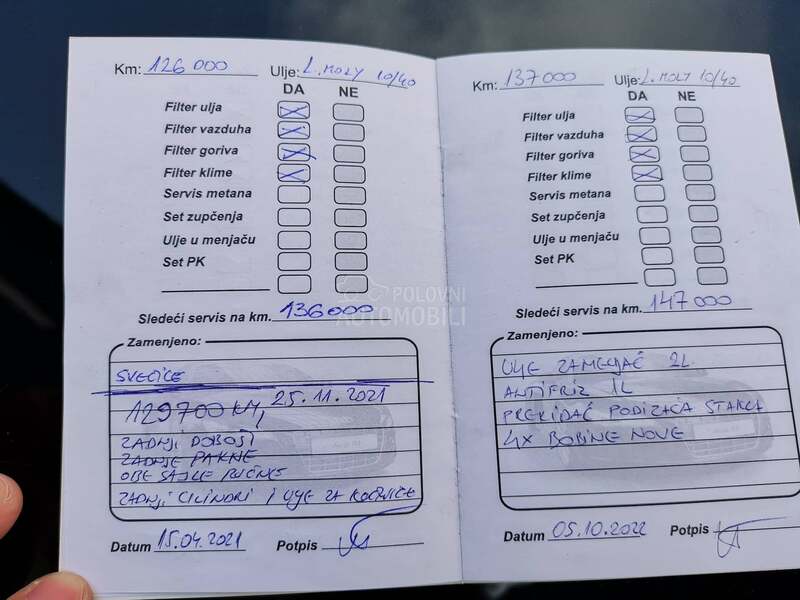 Km: 126 000 Ulje: L. MOLY 10/40
DA NE
Filter ulja
Filter vazduha
Filter goriva
Filter klime
Servis metana
Set zupčenja
Ulje u menjaču
Set PK
Sledeći servis na km. 136000
Zamenjeno:
SVEĆICE
129700 KM, 25.11.2021
ZADNJI DOBOŠI
ZADNJE PAKNE
OBE SAJLE RUČNE
ZADNJI CILINDRI I ULJE ZA KOČNICE
Datum 15.04.2021 Potpis
Km: 137000 Ulje: L. MOLY 10/40
DA NE
Filter ulja
Filter vazduha
Filter goriva
Filter klime
Servis metana
Set zupčenja
Ulje u menjaču
Set PK
Sledeći servis na km. 147000
Zamenjeno:
ULJE ZA MENJAČ 2L
ANTIFRIZ 1L
PREKIDAČ PODIZAČA STAKLA
4X BOBINE NOVE
Datum 05.10.2022 Potpis
POLOVNI
AUTOMOBILI